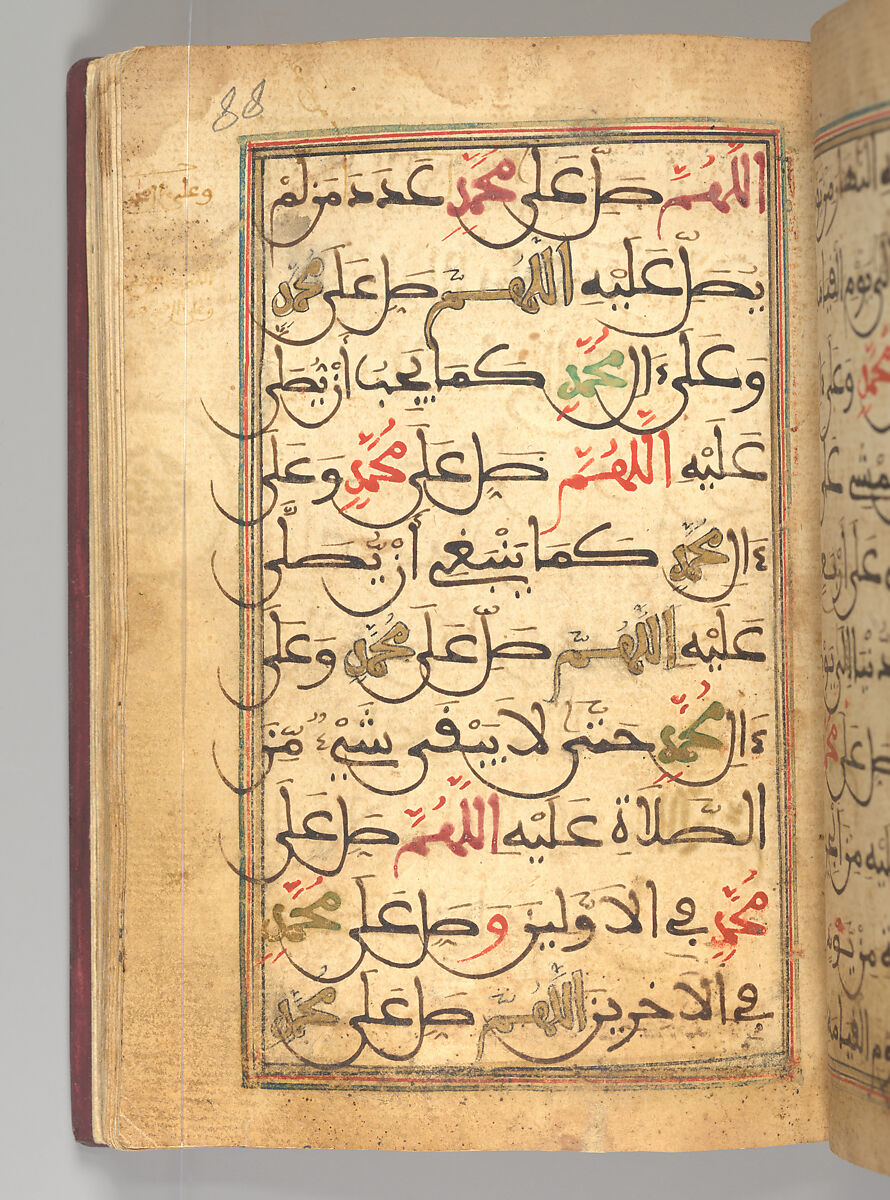 88
اللَّهُمَّ صَلِّ عَلَى مُحَمَّدٍ عَدَدَ مَن لَمْ
يُصَلِّ عَلَيْهِ اللَّهُمَّ صَلِّ عَلَى مُحَمَّدٍ
وَعَلَى ءَالِ مُحَمَّدٍ كَمَا يُحِبُّ أَنْ يُّصَلَّى
عَلَيْهِ اللَّهُمَّ صَلِّ عَلَى مُحَمَّدٍ وَعَلَى
ءَالِ مُحَمَّدٍ كَمَا يَنْبَغِي أَنْ يُّصَلَّى
عَلَيْهِ اللَّهُمَّ صَلِّ عَلَى مُحَمَّدٍ وَعَلَى
ءَالِ مُحَمَّدٍ حَتَّى لَا يَبْقَى شَيْءٌ مِّنَ
الصَّلَاةِ عَلَيْهِ اللَّهُمَّ صَلِّ عَلَى
مُحَمَّدٍ فِي الْأَوَّلِينَ وَصَلِّ عَلَى مُحَمَّدٍ
فِي الْأَخِرِينَ اللَّهُمَّ صَلِّ عَلَى مُحَمَّدٍ